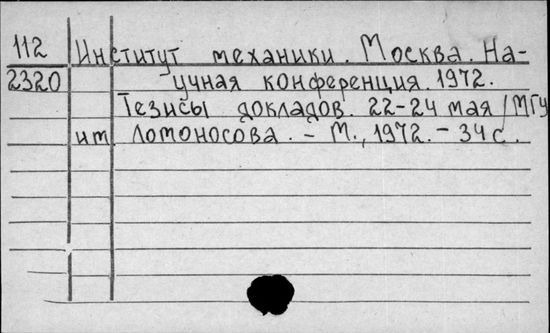 112 Институт механики. Москва. На-
2320 учная конференция. 1972.
Тезисы докладов. 22-24 мая / МГУ
им Ломоносова. - М., 1972. - 34 с.